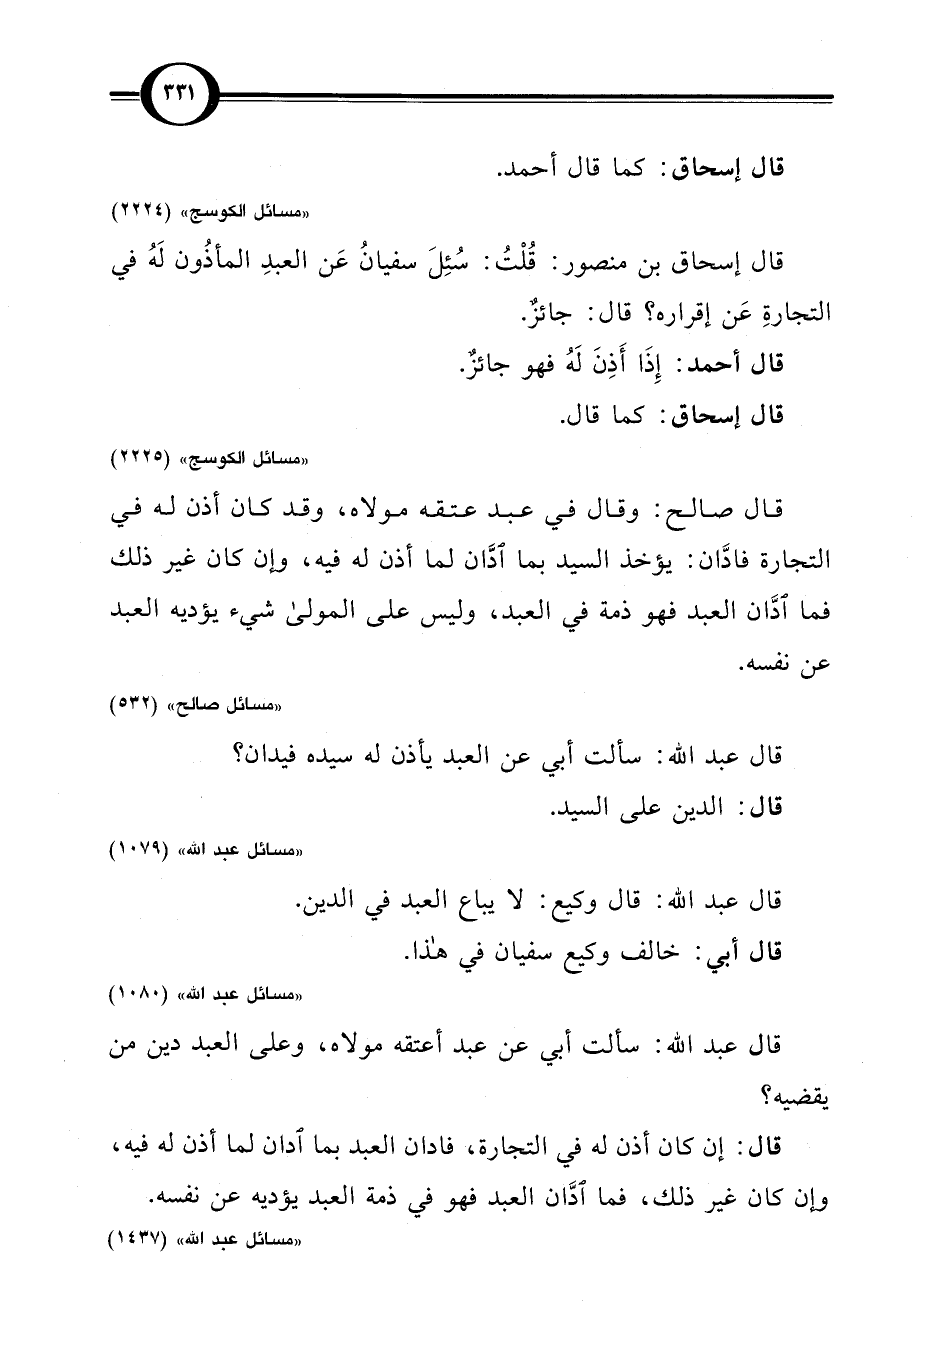 ٣٣١
قال إسحاق: كما قال أحمد.
«مسائل الكوسج» (٢٢٢٤)
قال إسحاق بن منصور: قُلْتُ: سُئِلَ سفيانُ عَن العبدِ المأذُون لَهُ في
التجارةِ عَن إقراره؟ قال: جائزٌ.
قال أحمد: إِذَا أَذِنَ لَهُ فهو جائزٌ.
قال إسحاق: كما قال.
«مسائل الكوسج» (٢٢٢٥)
قال صالح: وقال في عبد عتقه مولاه، وقد كان أذن له في
التجارة فادَّان: يؤخذ السيد بما ٱدَّان لما أذن له فيه، وإن كان غير ذلك
فما ٱدَّان العبد فهو ذمة في العبد، وليس على المولىٰ شيء يؤديه العبد
عن نفسه.
«مسائل صالح» (٥٣٢)
قال عبد الله: سألت أبي عن العبد يأذن له سيده فيدان؟
قال: الدين على السيد.
«مسائل عبد الله» (١٠٧٩)
قال عبد الله: قال وكيع: لا يباع العبد في الدين.
قال أبي: خالف وكيع سفيان في هٰذا.
«مسائل عبد الله» (١٠٨٠)
قال عبد الله: سألت أبي عن عبد أعتقه مولاه، وعلى العبد دين من
يقضيه؟
قال: إن كان أذن له في التجارة، فادان العبد بما ٱدان لما أذن له فيه،
وإن كان غير ذلك، فما ٱدَّان العبد فهو في ذمة العبد يؤديه عن نفسه.
«مسائل عبد الله» (١٤٣٧)